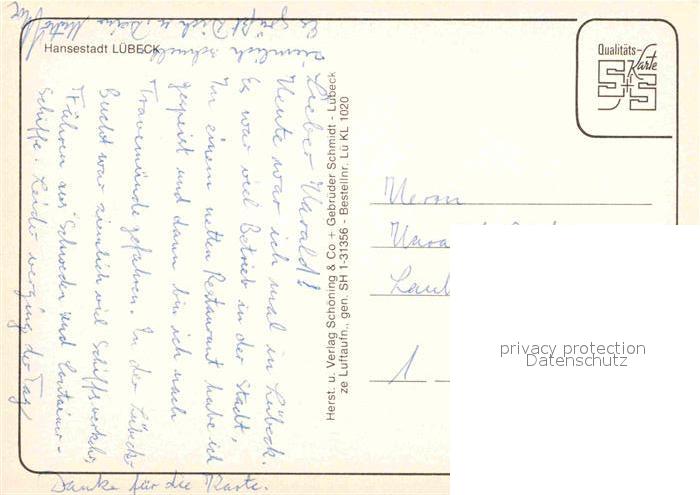 Hansestadt LÜBECK
Lieber Harald!
Heute war ich mal in Lübeck.
Es war viel Betrieb in der Stadt,
In einem netten Restaurant habe ich
gespeist und dann bin ich nach
Travemünde gefahren. In der Lübecker
Bucht war ziemlich viel Schiffsverkehr,
Fähren aus Schweden und Container-
schiffe. Leider verging der Tag
ziemlich schnell
Es grüßt Dich u. Deine
Danke für die Karte.
Herst. u. Verlag Schöning & Co + Gebrüder Schmidt - Lübeck
ze Luftaufn., gen. SH 1-31356 - Bestellnr. Lü KL 1020
Qualitäts-
Karte
S+S
Herrn
Hara
1
privacy protection
Datenschutz